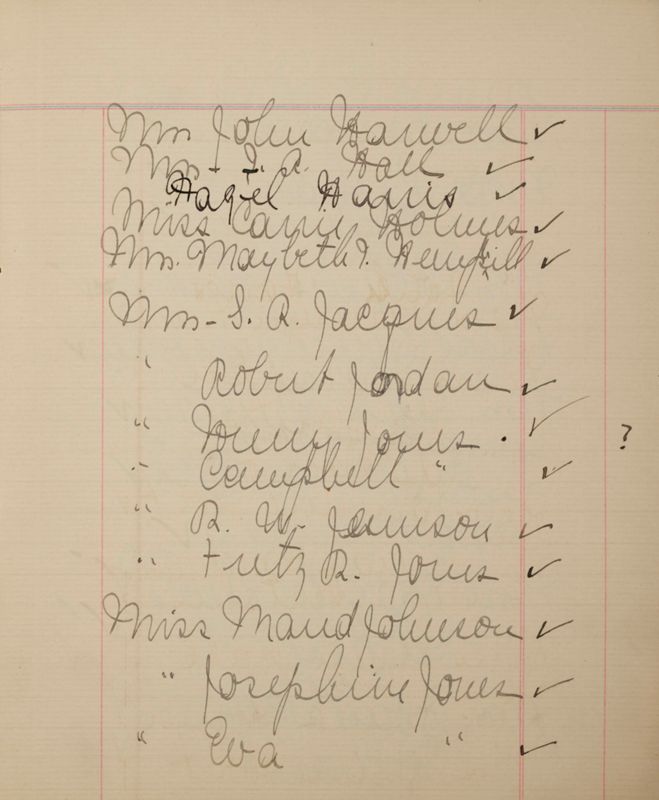 Mrs John Harwell ✓
Mrs - J. A. Hall ✓
Hazel Harris ✓
Miss Carrie Holmes ✓
Mrs. Maybeth J. Hemphill ✓
Mrs - S. A. Jacques ✓
" Robert Jordan ✓
" Jones . ✓ ?
" Campbell " ✓
" R. W. Jamison ✓
" Fritz R. Jones ✓
Miss Maud Johnson ✓
" Josephine Jones ✓
" Eva " ✓